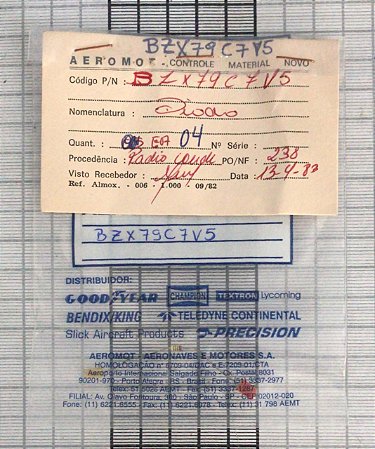 BZX79C7V5
AEROMOT - CONTROLE MATERIAL NOVO
Código P/N : BZX79C7V5
Nomenclatura : Diodo
Quant. : EA 04 Nº Série :
Procedência : Radio PO/NF : 238
Visto Recebedor : Data : 13-9-83
Ref. Almox. - 006 - 1.000 - 09/82
BZX79C7V5
DISTRIBUIDOR:
GOODYEAR CHAMPION TEXTRON Lycoming
BENDIX/KING TELEDYNE CONTINENTAL
Slick Aircraft Products PRECISION
AEROMOT - AERONAVES E MOTORES S.A.
HOMOLOGAÇÃO nº 6209-04/DAC e E-7209-01/CTA
Aeroporto Internacional Salgado Filho - Cx. Postal 8031
90201-970 - Porto Alegre - RS - Brasil - Fone: (51) 3337-2977
Telex: 51 2025 AEMT - Fax: (51) 3337-1287
FILIAL: Av. Olavo Fontoura, - São Paulo - SP - CEP 02012-020
Fone: (11) 6221.6555 - Fax: (11) 6221.6878 - Telex: (11) 31 798 AEMT